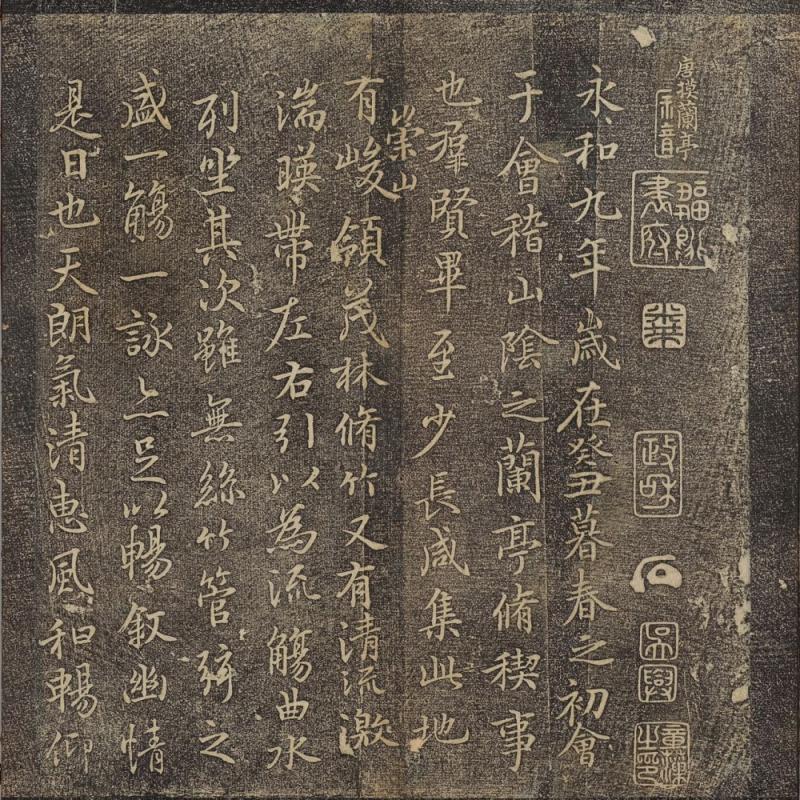 唐摸蘭亭
政和
吳興
永和九年歲在癸丑暮春之初會
于會稽山陰之蘭亭脩稧事
也羣賢畢至少長咸集此地
有崇山峻領茂林脩竹又有清流激
湍暎帶左右引以為流觴曲水
列坐其次雖無絲竹管弦之
盛一觴一詠亦足以暢敘幽情
是日也天朗氣清惠風和暢仰